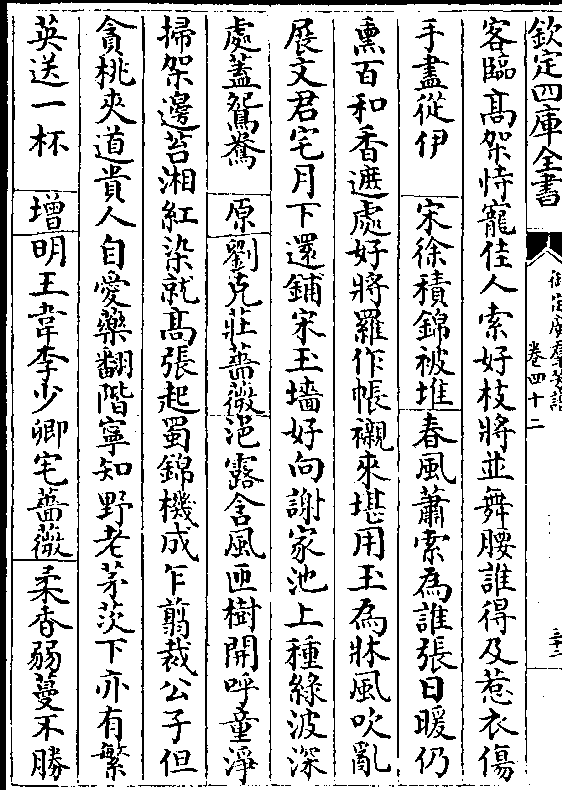 欽定四庫全書
御定廣羣芳譜
卷四十二
三十二
客臨高架恃寵佳人索好枝將並舞腰誰得及惹衣傷
手盡從伊　宋徐積錦被堆春風蕭索為誰張日暖仍
熏百和香遮處好將羅作帳襯來堪用玉為牀風吹亂
展文君宅月下還鋪宋玉墻好向謝家池上種綠波深
處蓋鴛鴦　原劉克莊薔薇浥露含風匝樹開呼童淨
掃架邊苔湘紅染就高張起蜀錦機成乍翦裁公子但
貪桃夾道貴人自愛藥翻階寧知野老茅茨下亦有繁
英送一杯　增明王韋李少卿宅薔薇柔香弱蔓不勝